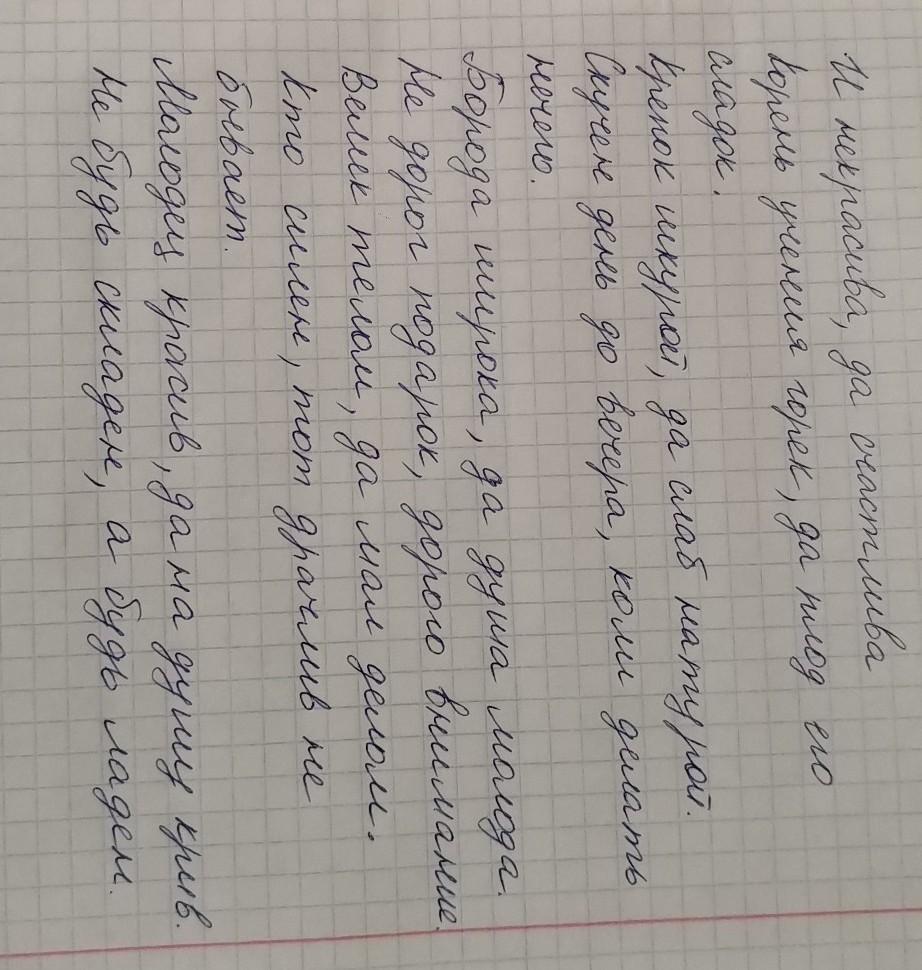 И некрасива, да счастлива
Корень учения горек, да плод его
сладок.
Крепок шкурой, да слаб натурой.
Скучен день до вечера, коли делать
нечего.
Борода широка, да душа молода.
Не дорог подарок, дорого внимание.
Велик телом, да мал делом.
Кто силен, тот драчлив не
бывает.
Молодец красив, да на душу крив.
Не будь складен, а будь ладен.